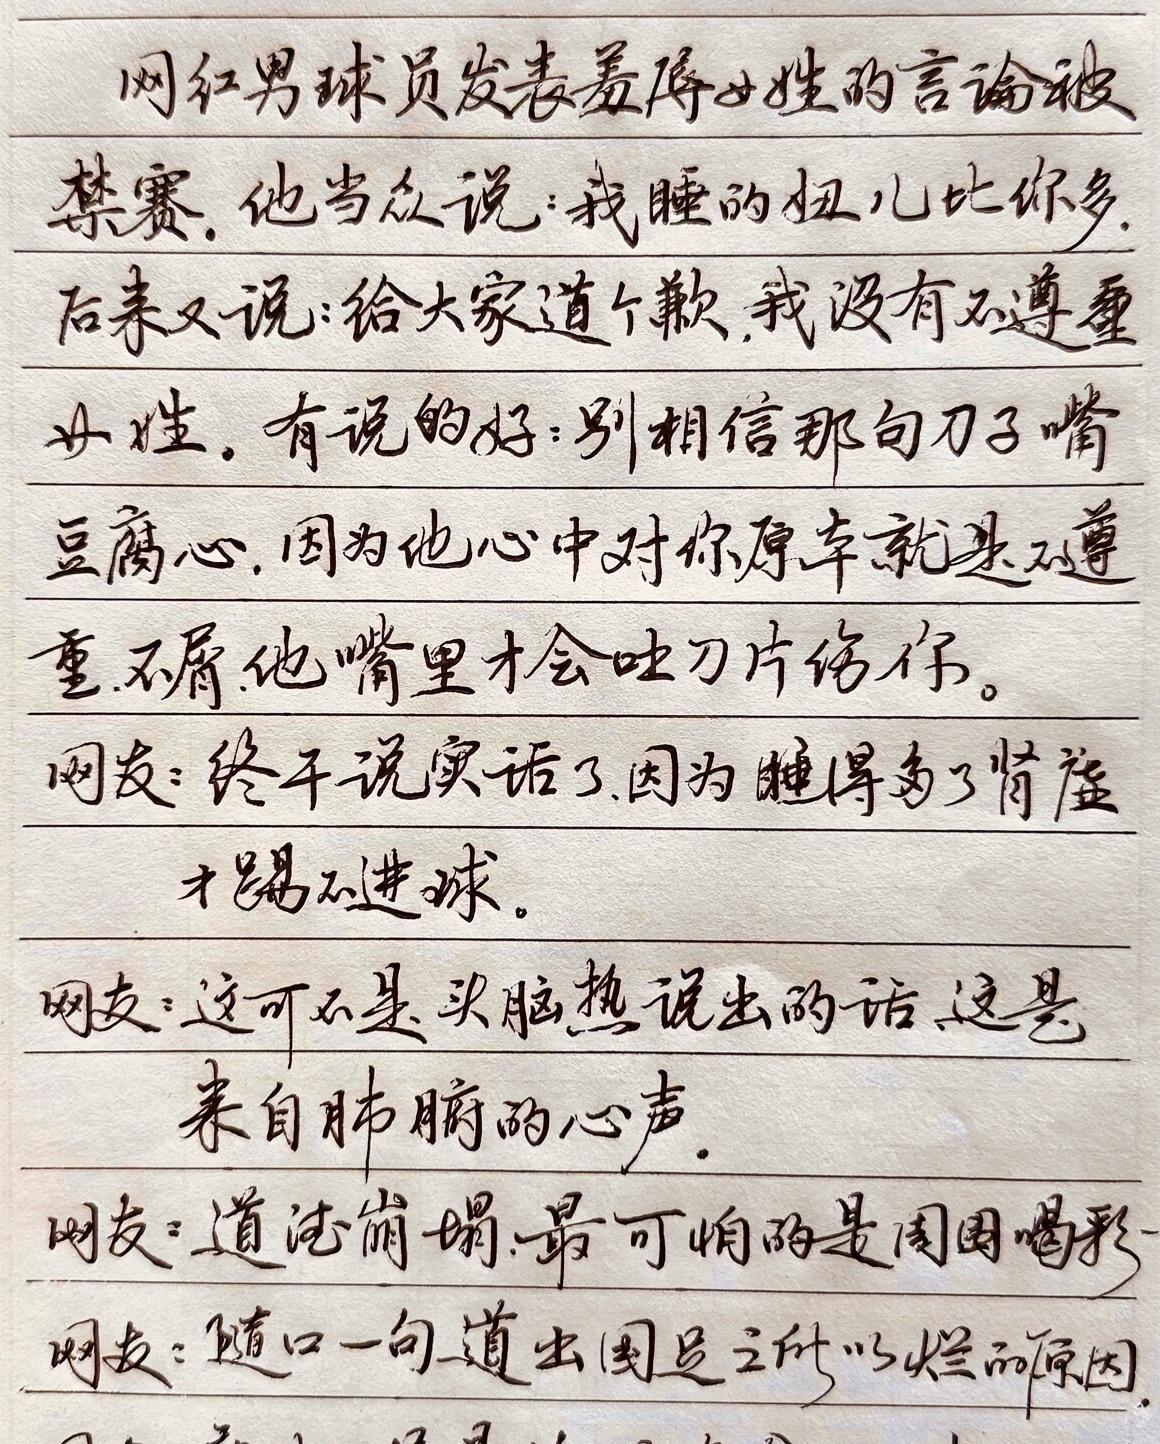 网红男球员发表羞辱女姓的言论被
禁赛.他当众说:我睡的妞儿比你多.
后来又说:给大家道个歉,我没有不遵重
女姓。有说的好:别相信那句刀子嘴
豆腐心.因为他心中对你原本就是不遵
重、不屑、他嘴里才会吐刀片伤你。
网友:终于说实话了、因为睡得多了肾虚
才踢不进球。
网友:这可不是头脑热说出的话、这是
来自肺腑的心声.
网友:道德崩塌、最可怕的是周围喝彩
网友:随口一句道出国足之所以烂的原因.